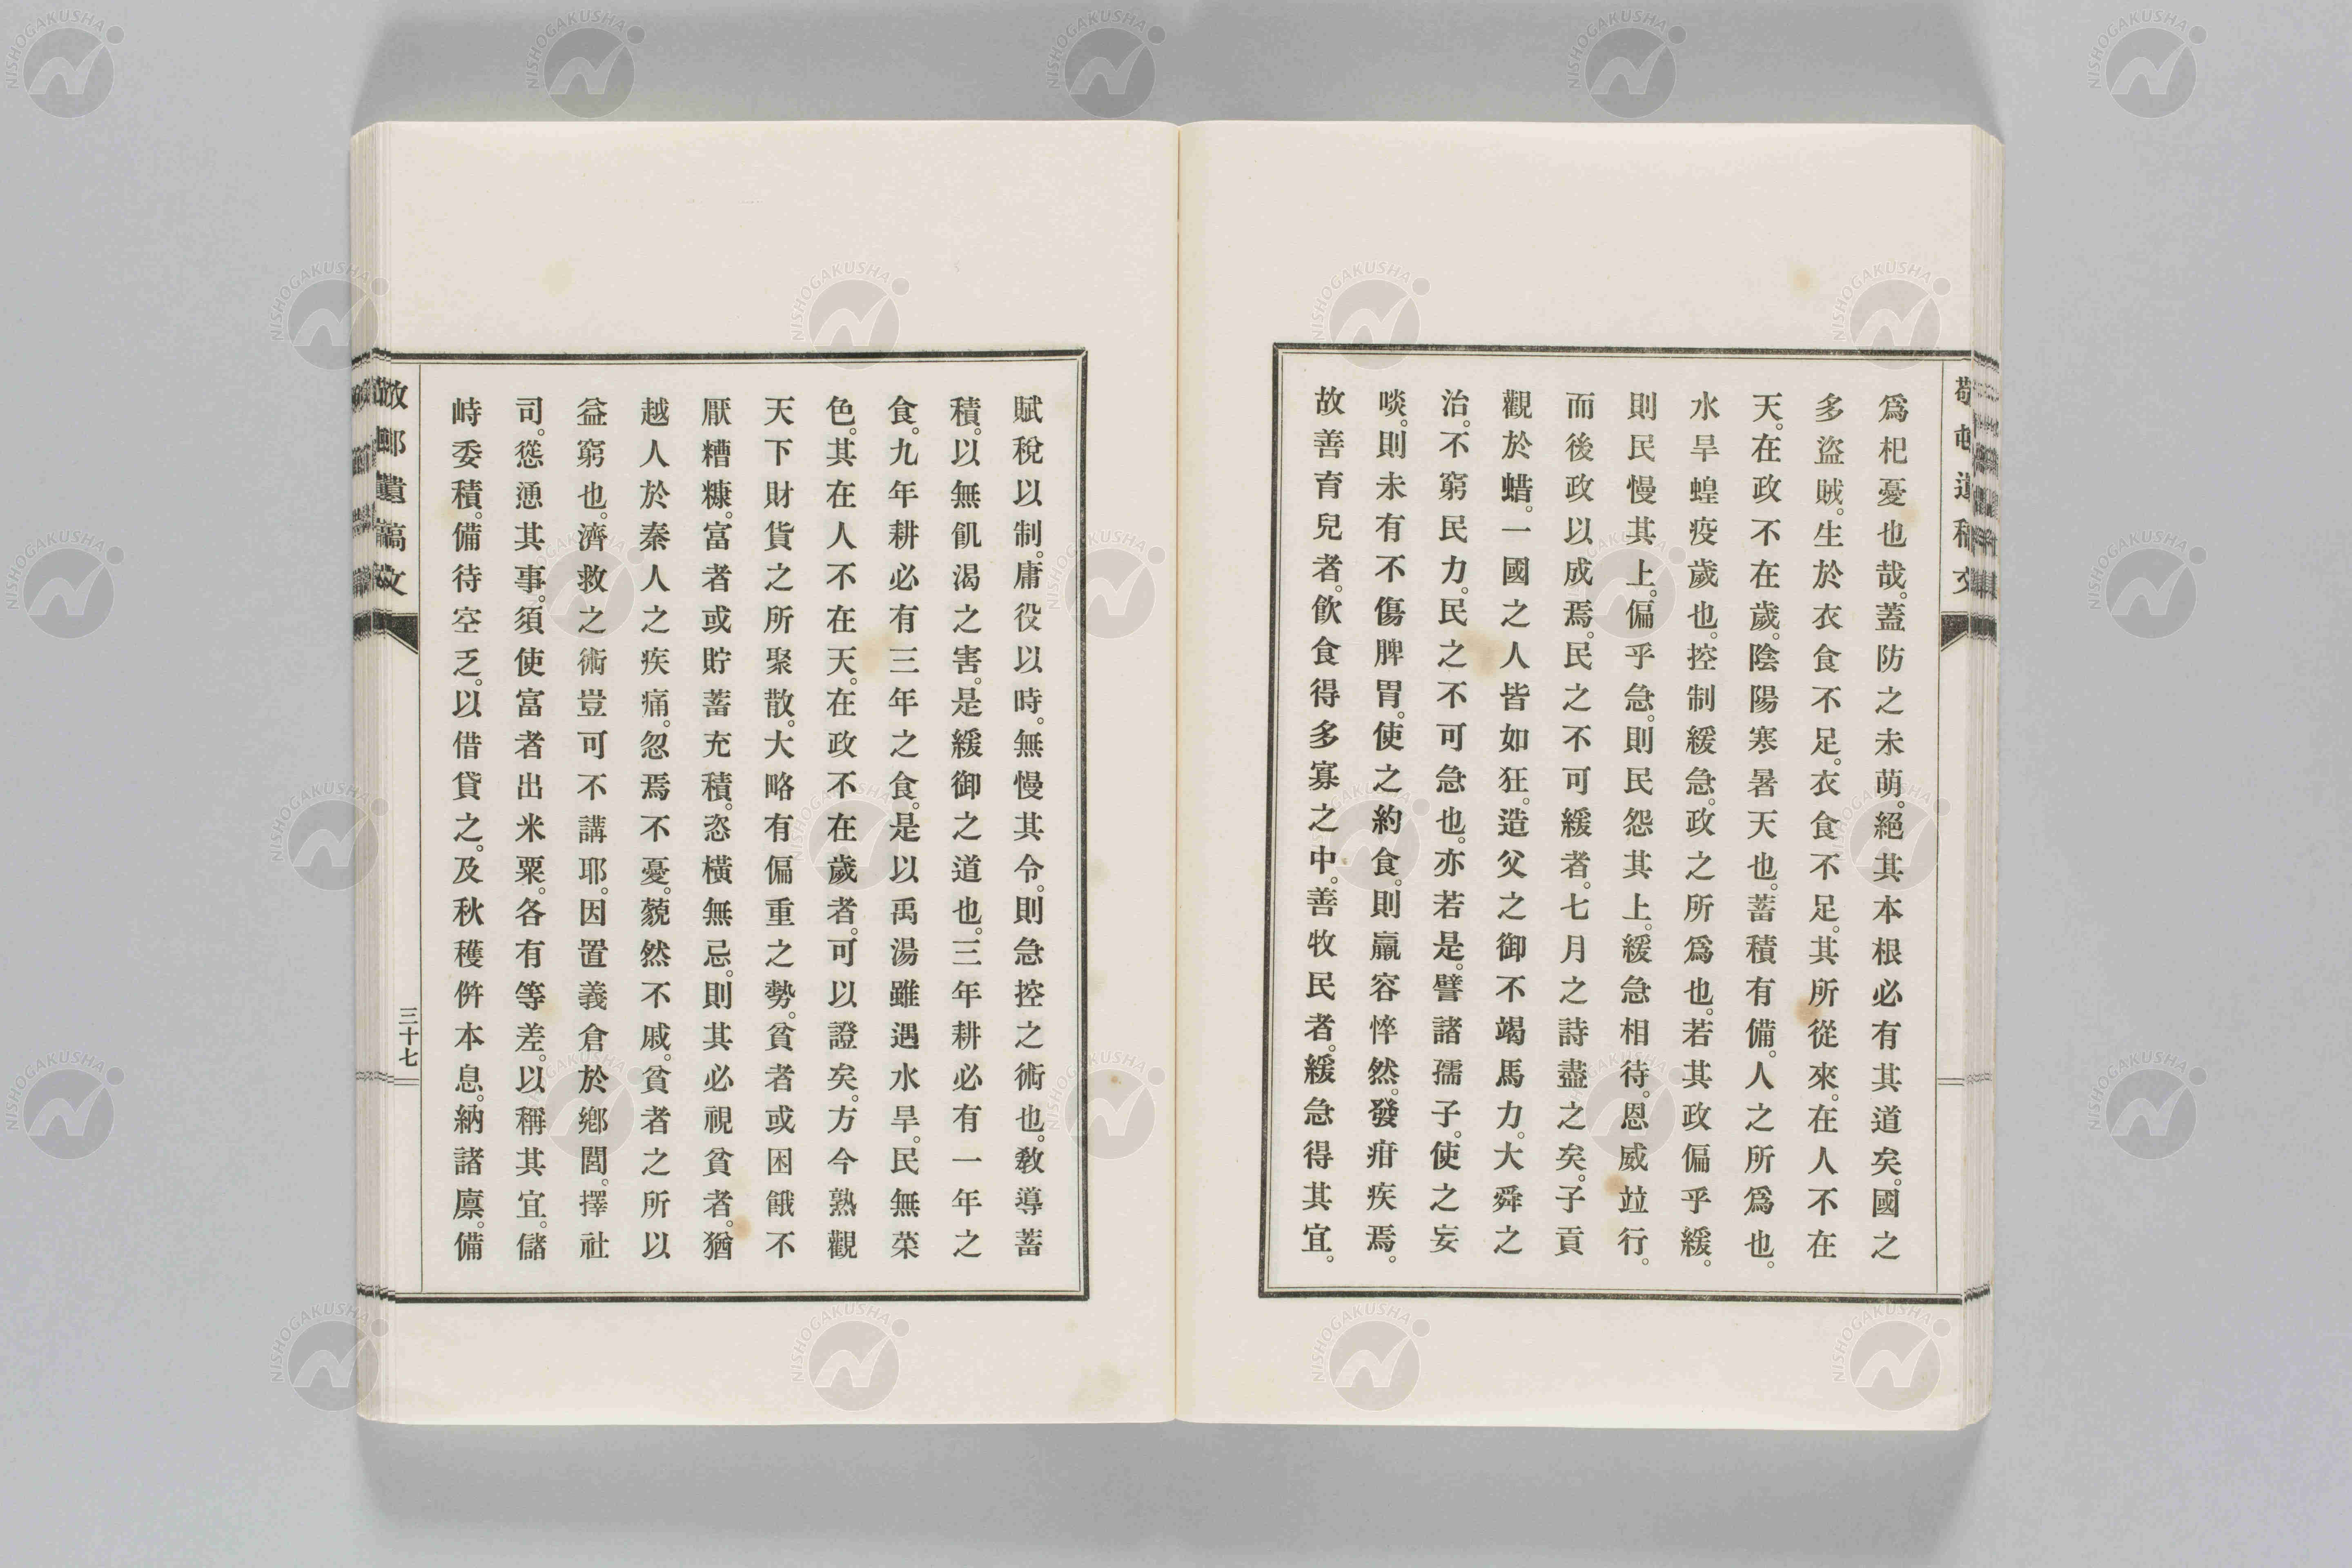 爲杞憂也哉。蓋防之未萌。絕其本根必有其道矣。國之
多盜賊。生於衣食不足。衣食不足。其所從來。在人不在
天。在政不在歲。陰陽寒暑天也。蓄積有備。人之所爲也。
水旱蝗疫歲也。控制緩急。政之所爲也。若其政偏乎緩。
則民慢其上。偏乎急。則民怨其上。緩急相待。恩威竝行。
而後政以成焉。民之不可緩者。七月之詩盡之矣。子貢
觀於蜡。一國之人皆如狂。造父之御不竭馬力。大舜之
治。不窮民力。民之不可急也。亦若是。譬諸孺子。使之妄
啖。則未有不傷脾胃。使之約食。則羸容悴然。發疳疾焉。
故善育兒者。飮食得多寡之中。善牧民者。緩急得其宜。
賦稅以制。庸役以時。無慢其令。則急控之術也。敎導蓄
積。以無飢渴之害。是緩御之道也。三年耕必有一年之
食。九年耕必有三年之食。是以禹湯雖遇水旱。民無菜
色。其在人不在天。在政不在歲者。可以證矣。方今熟觀
天下財貨之所聚散。大略有偏重之勢。貧者或困餓不
厭糟糠。富者或貯蓄充積。恣橫無忌。則其必視貧者。猶
越人於秦人之疾痛。忽焉不憂。藐然不戚。貧者之所以
益窮也。濟救之術豈可不講耶。因置義倉於鄕閭。擇社
司。慫慂其事。須使富者出米粟。各有等差。以稱其宜。儲
峙委積。備待空乏。以借貸之。及秋穫倂本息。納諸廩。備
三十七
NISHOGAKUSHA